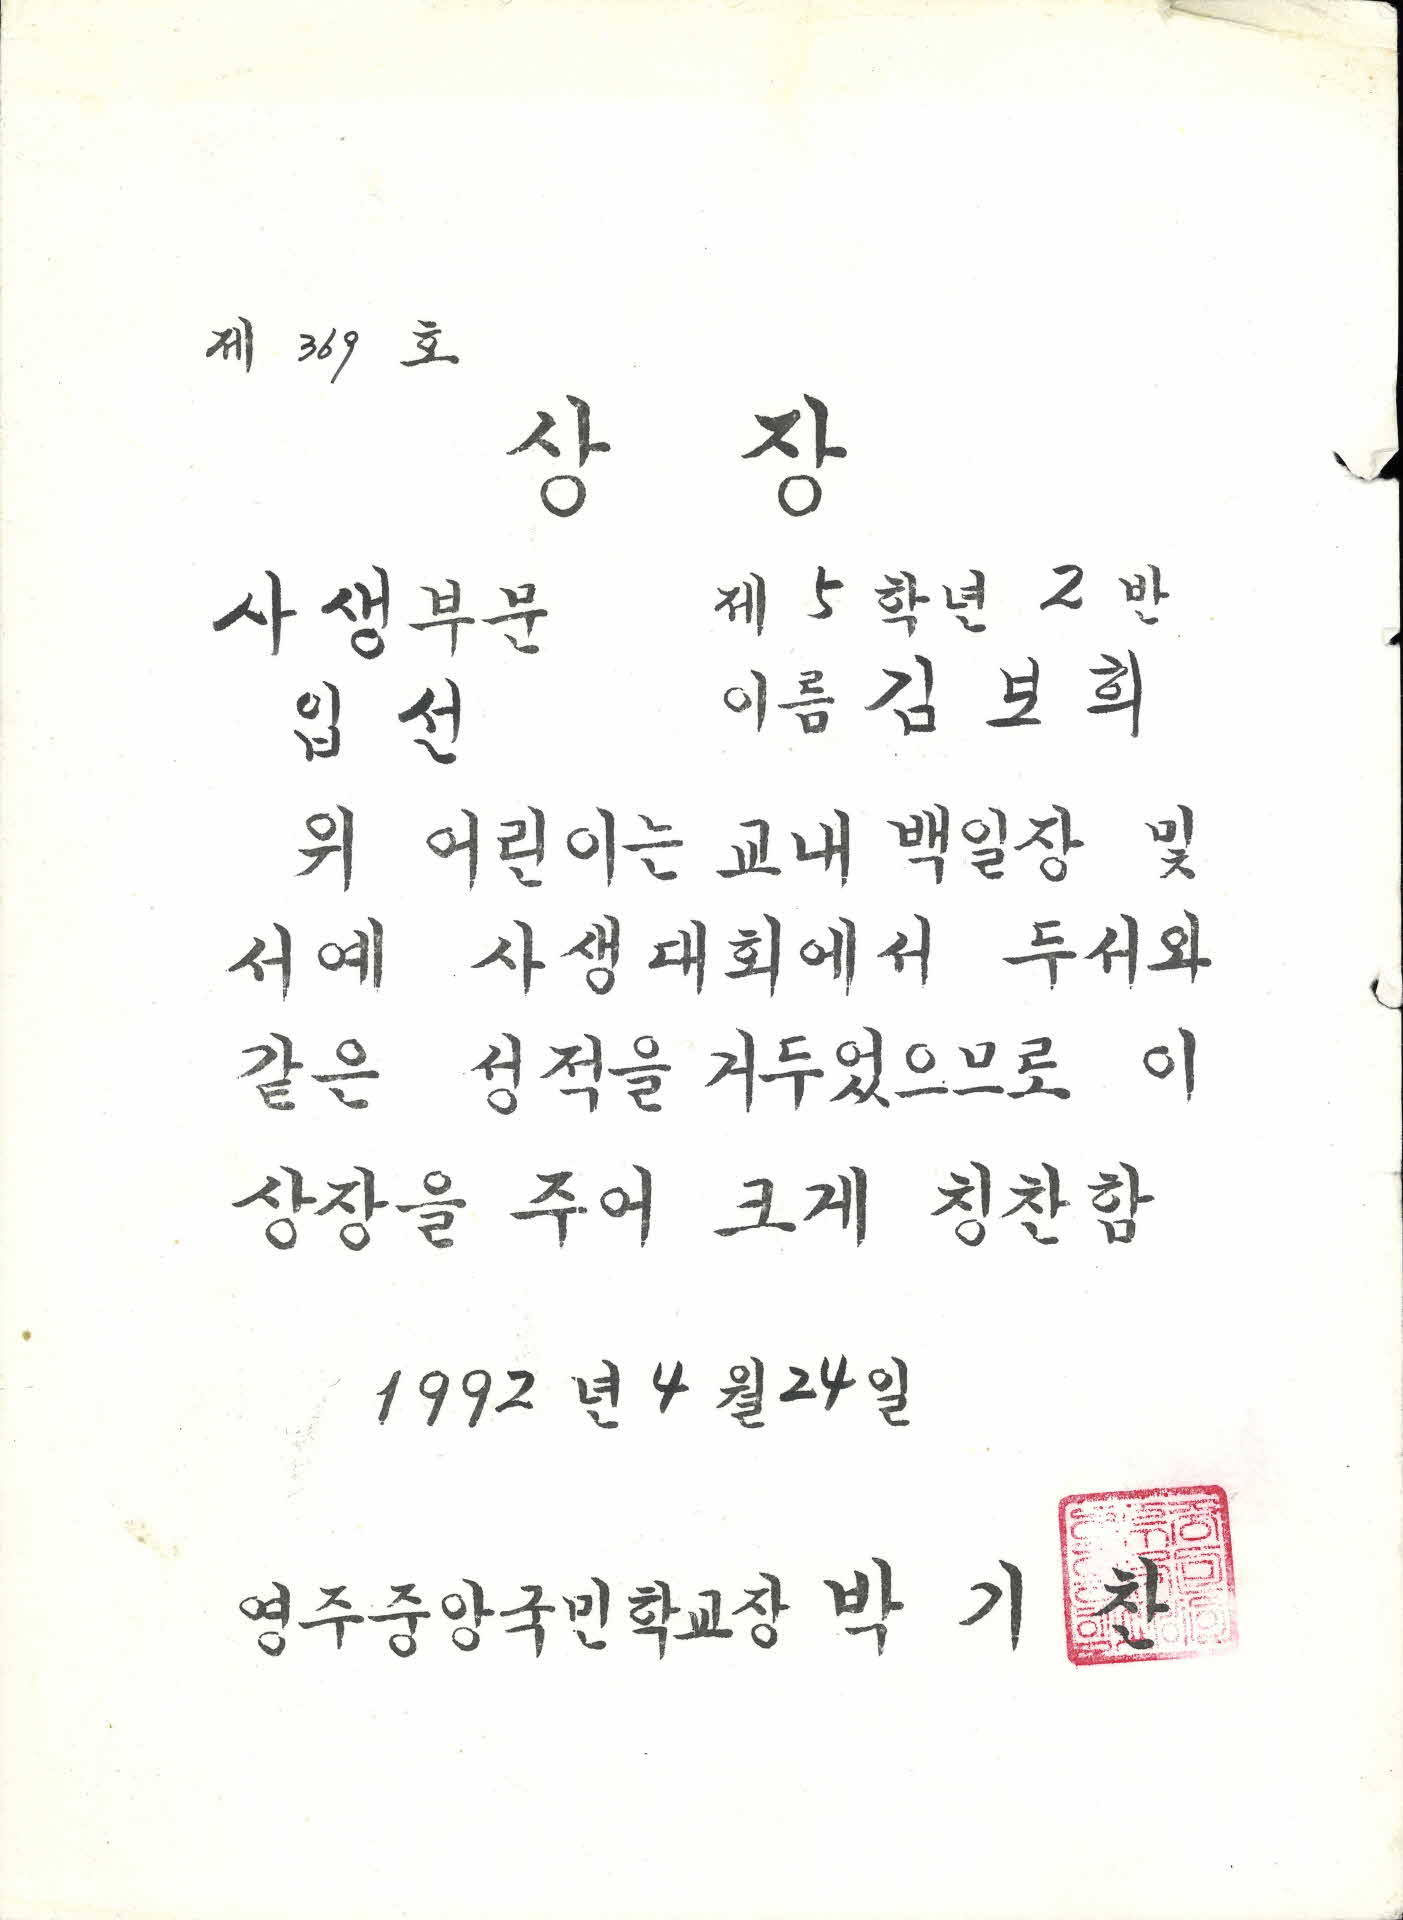 제 369 호
상 장
사생부문 제 5 학년 2 반
입 선 이름 김 보 희
위 어린이는 교내 백일장 및
서예 사생대회에서 두서와
같은 성적을 거두었으므로 이
상장을 주어 크게 칭찬함
1992 년 4 월 24 일
영주중앙국민학교장 박 기 찬